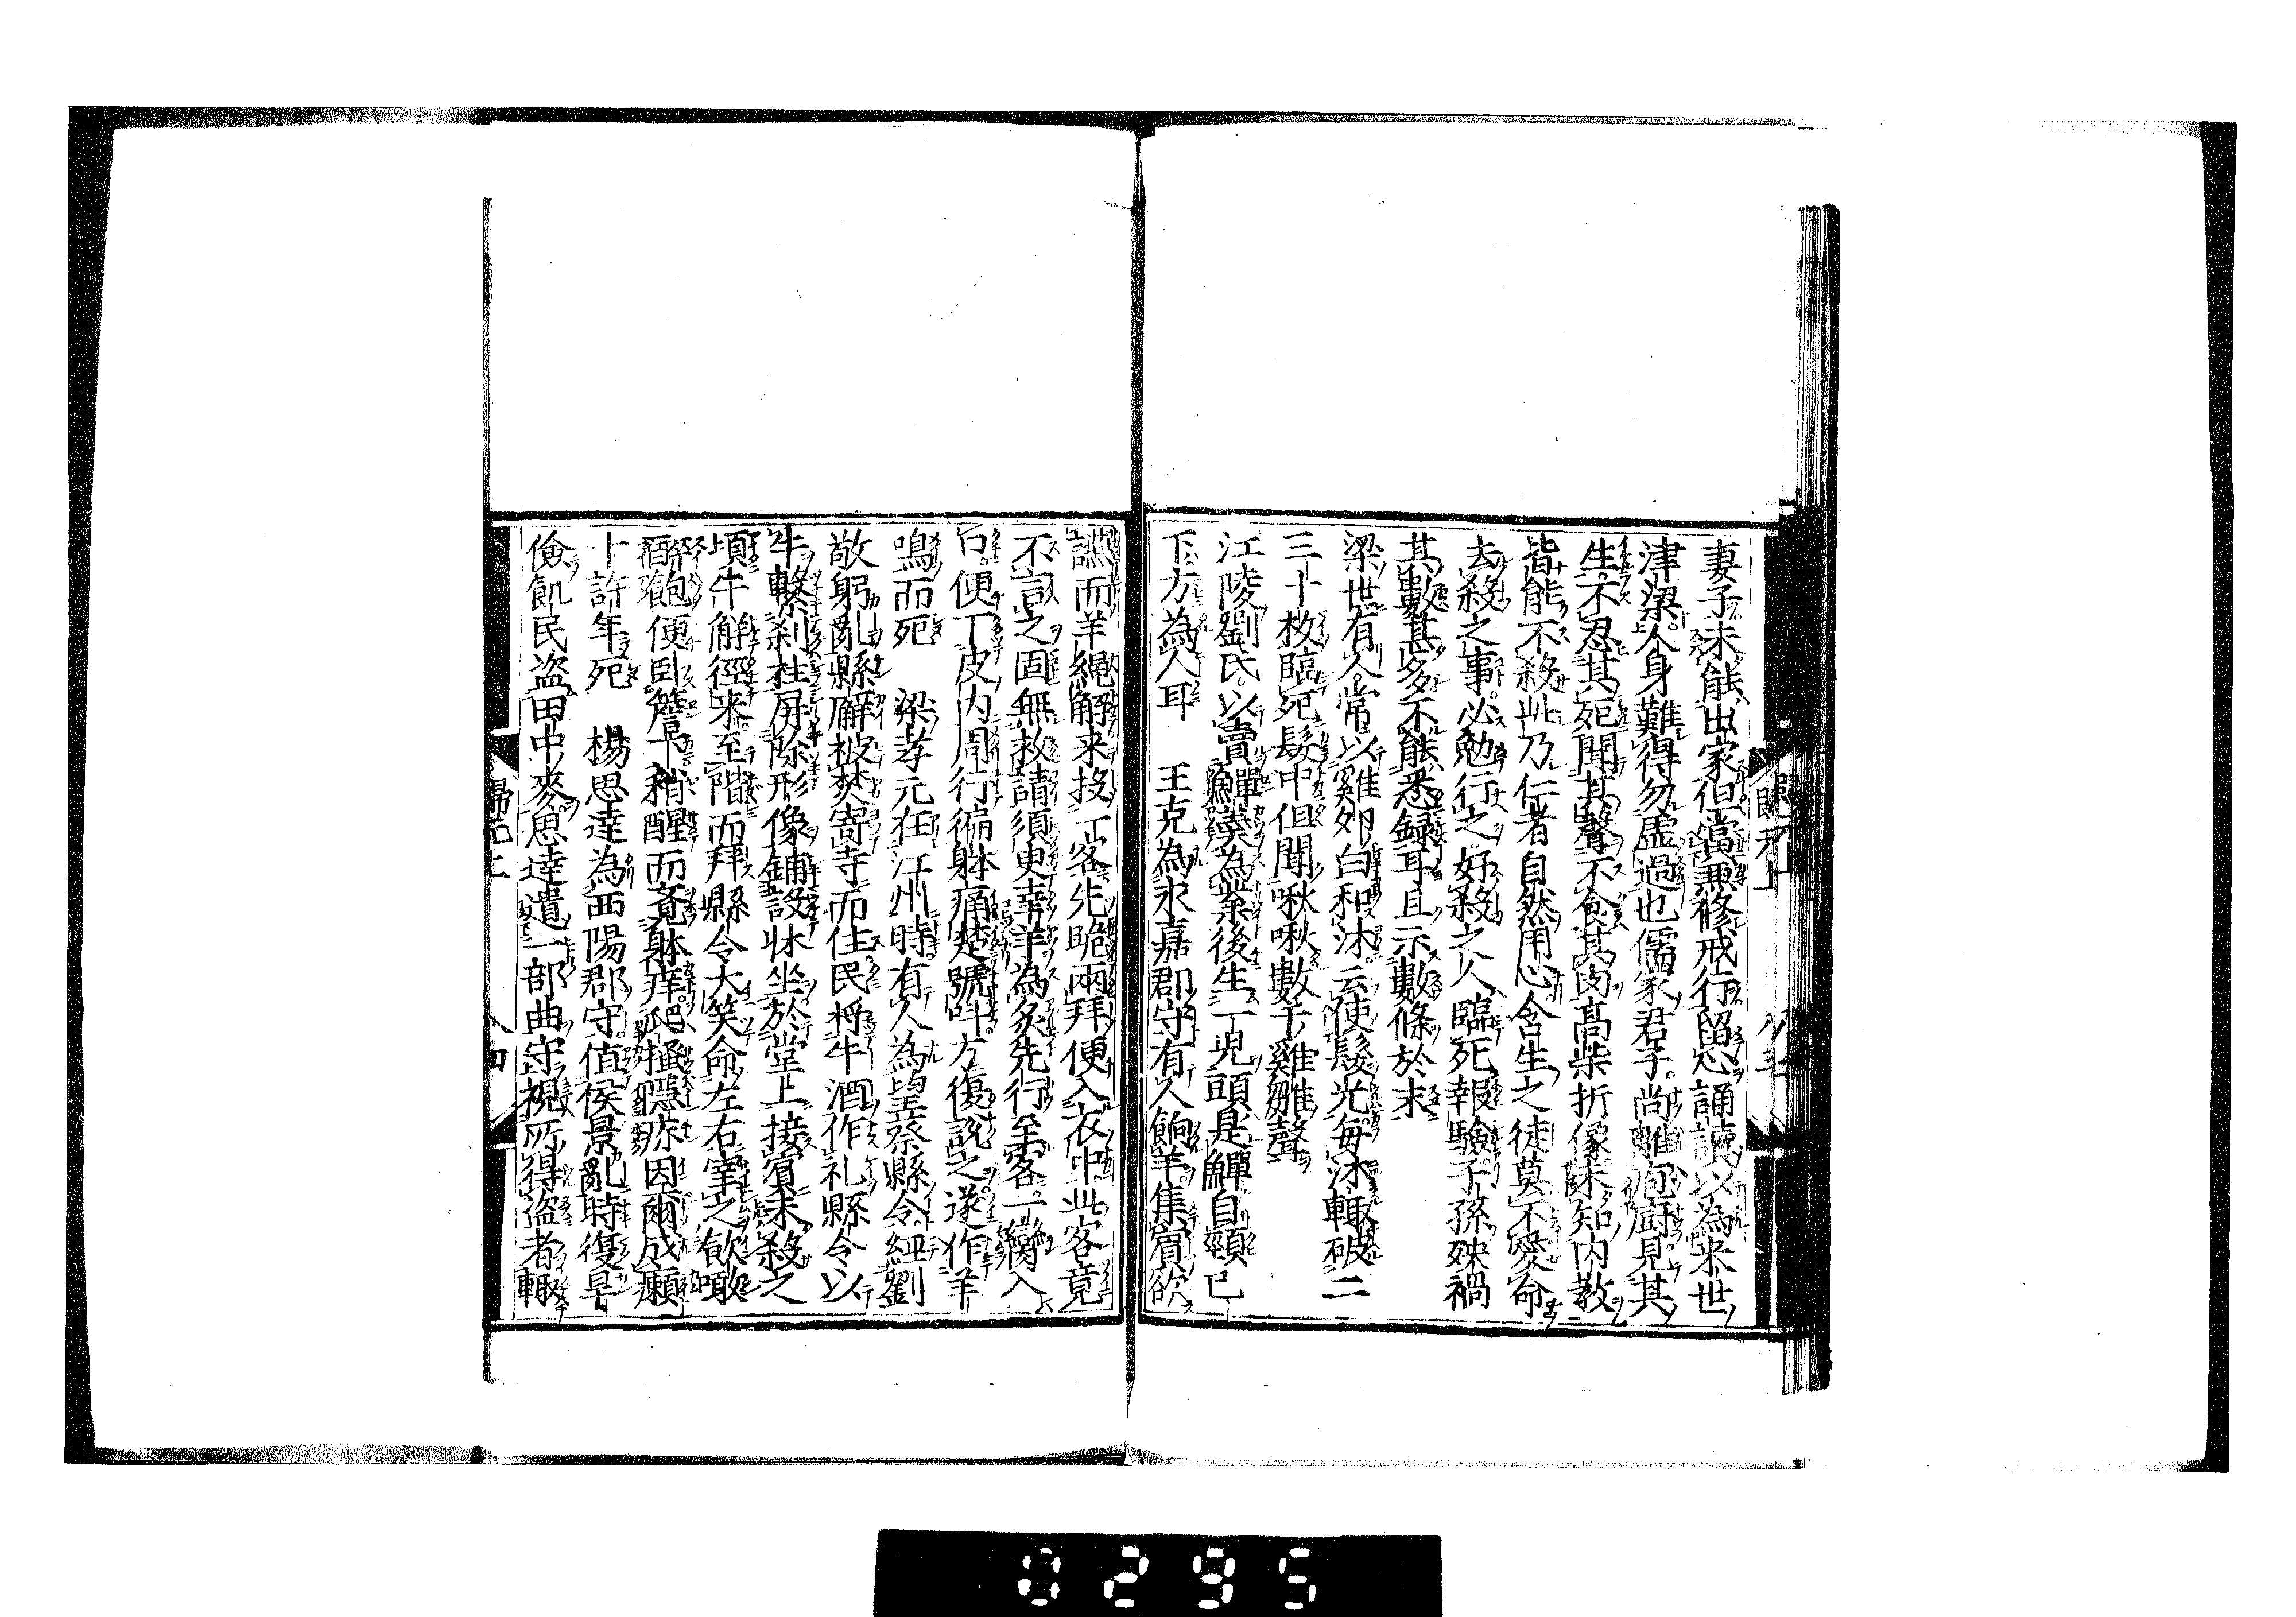 妻子未能出家但當兼修戒行留心誦讀以為来世
津梁人身難得勿虚過也儒家君子尚離庖廚見其
生不忍其死聞其聲不食其肉高柴折像未知内教
皆能不殺此乃仁者自然用心含生之徒莫不愛命
去殺之事必勉行之好殺之人臨死報驗子孫殃禍
其數甚多不能悉録耳且示數條於末
梁世有人常以雞卵白和沐云使髮光毎沐輙破二
三十枚臨死髮中但聞啾啾數千雞雛聲
江陵劉氏以賣鱓羹為業後生一児頭是鱓自頸已
下方為人耳　王克為永嘉郡守有人餉羊集賓欲
讌而羊繩解来投一客先跪兩拜便入衣中此客竟
不言之固無救請須臾宰羊為炙先行至客一臠入
口便下皮内周行徧躰痛楚號叫方復説之遂作羊
鳴而死　梁孝元在江州時有人為望蔡縣令經劉
敬躬乱縣廨被焚寄寺而住民将牛酒作礼縣令以
牛繋刹柱屏除形像鋪設牀坐於堂上接賓未殺之
頃牛解徑来至階而拜縣令大笑命左右宰之飲噉
酒飽便卧簷下稍醒而覺躰痒爬搔隠疹因爾成癩
十許年死　楊思達為西陽郡守值侯景亂時復旱
儉飢民盗田中麥思達遣一部曲守視所得盗者輙
歸元上
四
0295